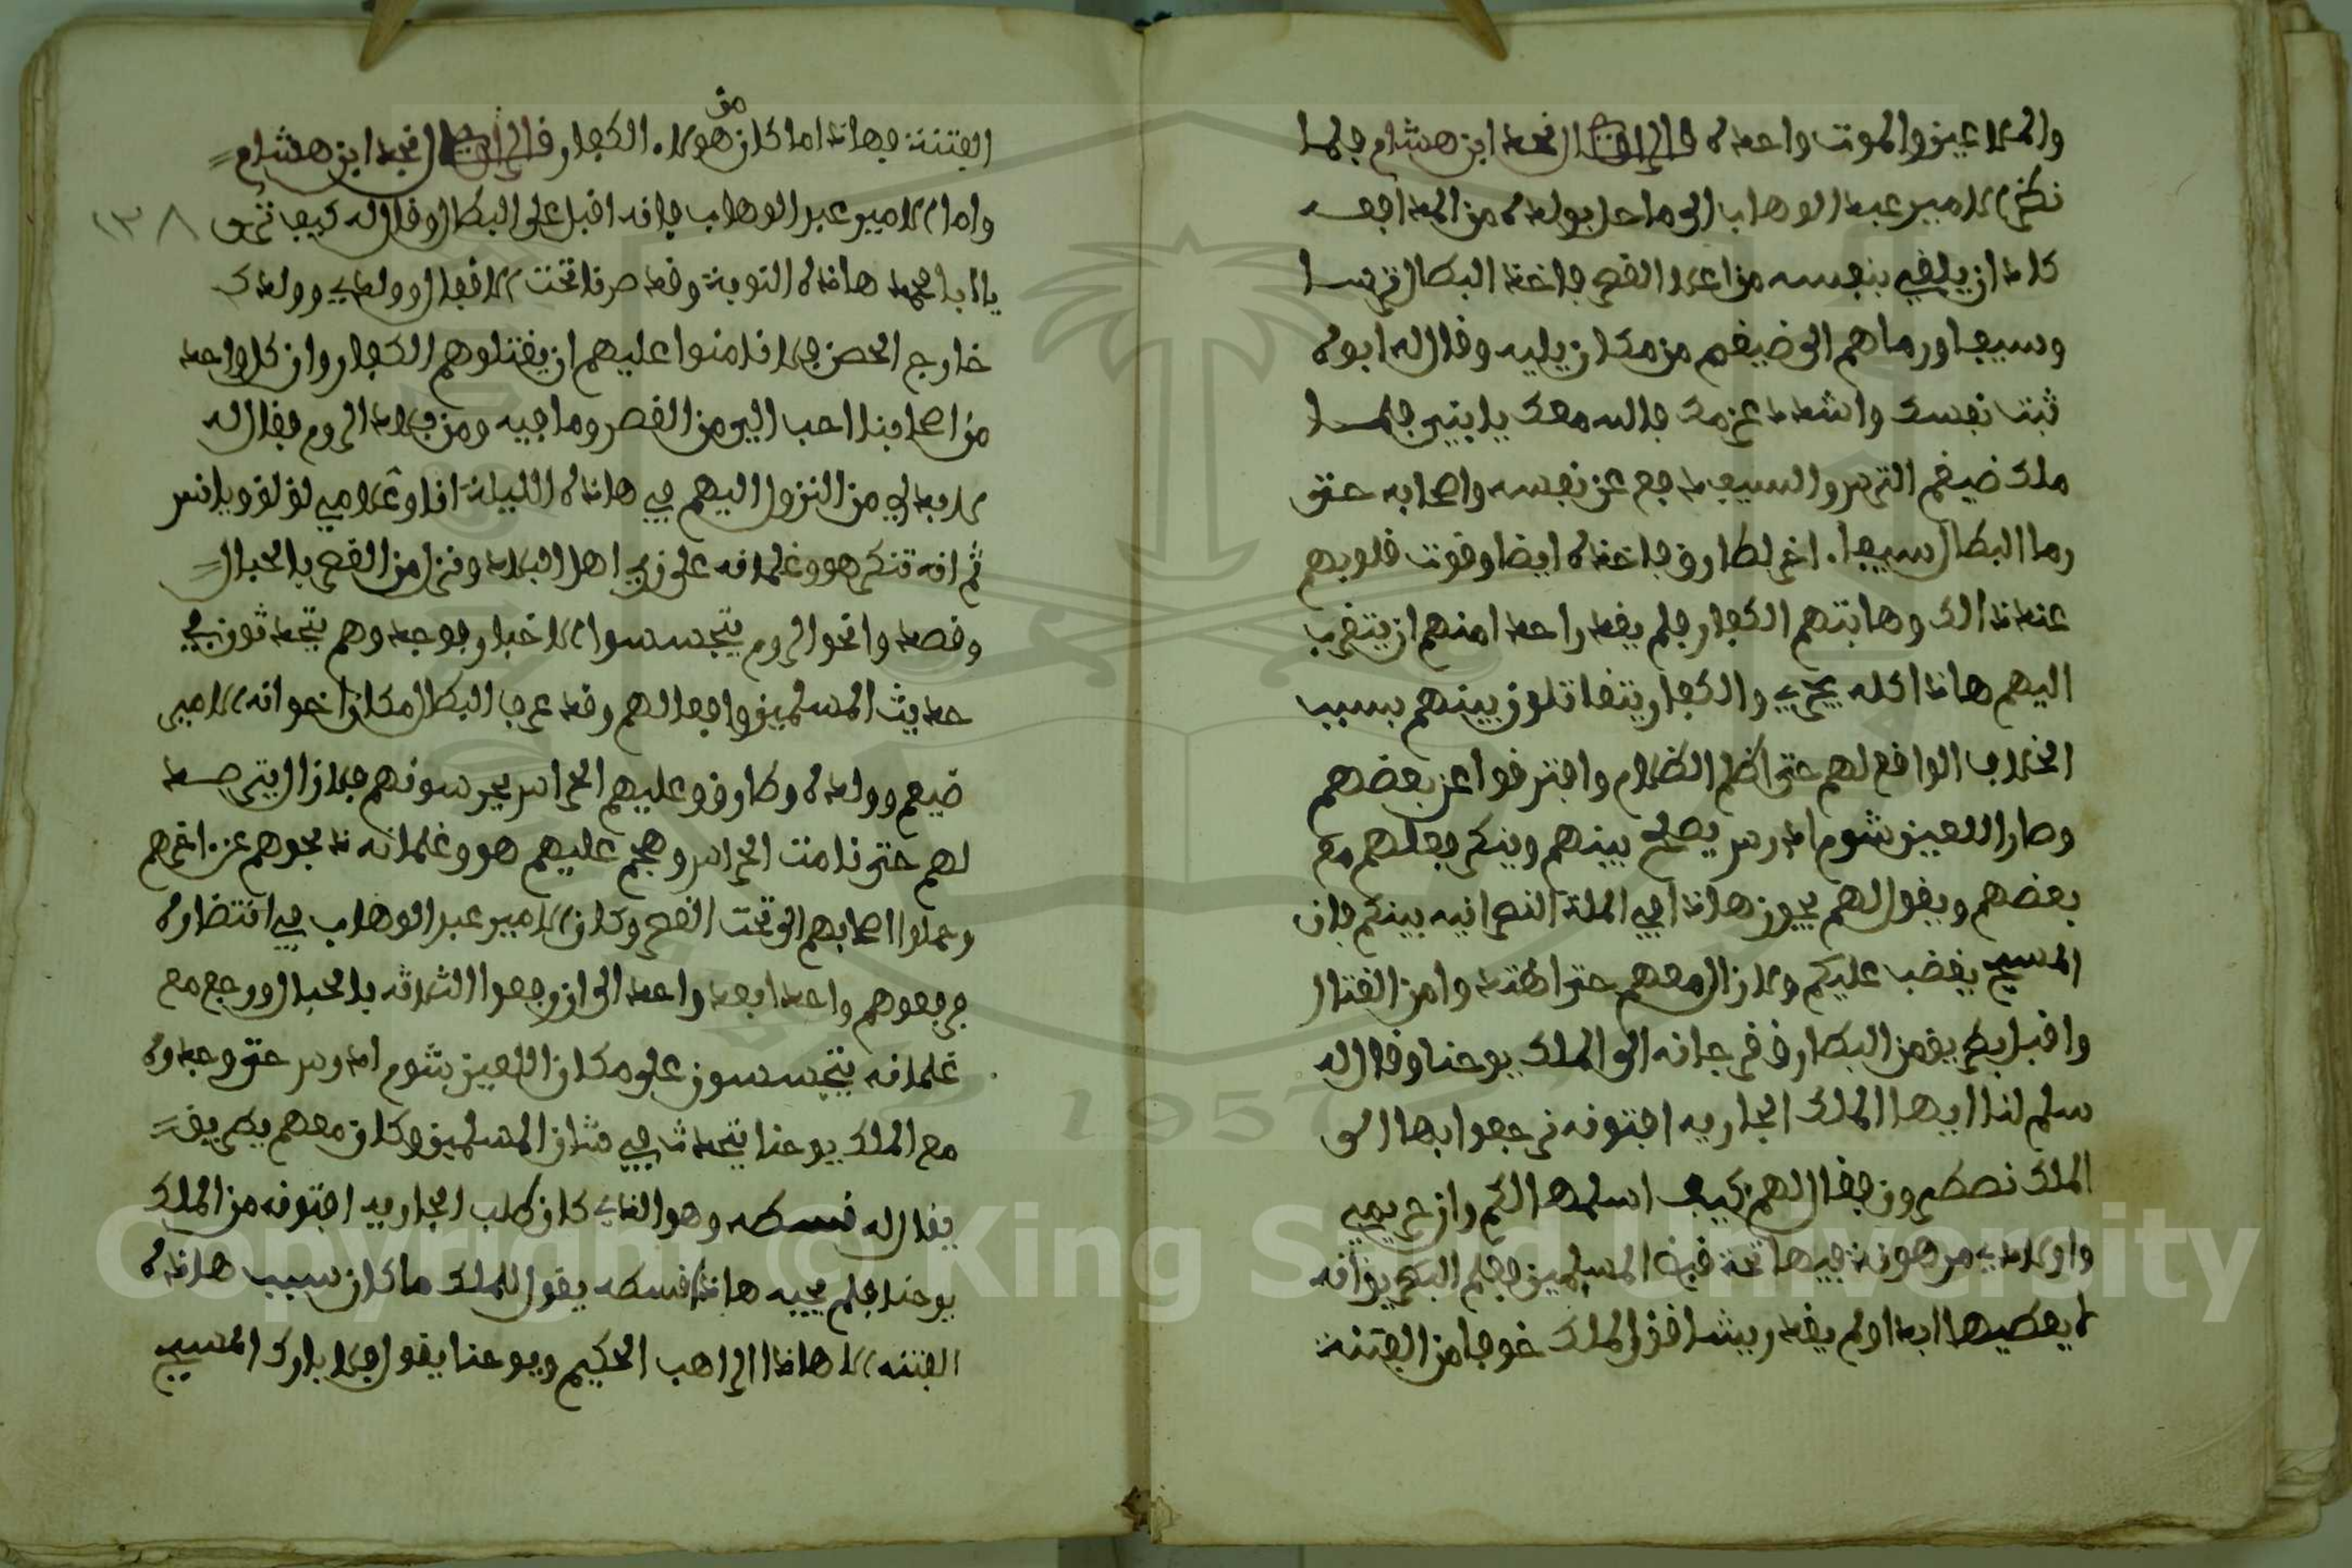 والملاعين والموت واحدة قال الراوي نجد ابن هشام فلما
نظر الامير عبد الوهاب الى ما حل بولده من الجد افعد
كاد ان يلقي بنفسه من اعلا القصر فاخذ البطال ترسا
وسيفا ورماهم الى ضيغم من مكان يليه وقال له ابوه
ثبت نفسك واشدد عزمك فالله معك يا بني فلما
ملك ضيغم الترس والسيف دفع عن نفسه واصحابه حتى
رما البطال سيفا اخر لطارق فاخذه ايضا وقوت قلوبهم
عند ذالك وهابتهم الكفار فلم يقدر احد منهم ان يتقرب
اليهم هاذا كله يجري والكفار يتقاتلون بينهم بسبب
الخلاف الواقع لهم حتى اظلم الظلام وافترقوا عن بعضهم
وصار اللعين شوم ادرس يصلح بينهم وينكر فعلهم مع
بعضهم ويقول لهم يجوز هاذا في الملة النصرانيه بينكم فان
المسيح يغضب عليكم ولا زال معهم حتى اهتدوا من القتال
واقبل بطريق من البطارقه فرجانه الى الملك يوحنا وقال له
سلم لنا ايها الملك الجاريه افتونه نرجعوا بها الى
الملك نصطرون فقال لهم كيف اسلمها لكم وان حريمي
واولادي مرهونة فيها تحت قبض المسلمين فعلم البطريق انه
لا يعطيها ابدا ولم يقدر يشاقق الملك خوفا من الفتنة
الفتنة فهاذا ما كان من هولاء الكفار قال الراوي نجد ابن هشام
واما الامير عبد الوهاب فانه اقبل على البطال وقال له كيف ترى
يا ابا محمد هاذه النوبة وقد صرنا تحت الاقفال وولدي وولدك
خارج الحصن فلا نامنوا عليهم ان يقتلوهم الكفار وان كل واحد
من اصحابنا احب الي من القصر وما فيه ومن بلاد الروم فقال له
لا بد لي من النزول اليهم في هاذه الليلة انا وغلامي لولو ويانس
ثم انه تنكر هو وغلمانه على زي اهل البلاد ونزل من القصر بالحبال
وقصدوا نحو الروم يتجسسوا الاخبار فوجدوهم يتحدثون في
حديث المسلمين وافعالهم وقد عرف البطال مكان اخوانه الامير
ضيغم وولده وطارق وعليهم الحراس يحرسونهم فلا زال يترصد
لهم حتى نامت الحراس وهجم عليهم هو وغلمانه ذبحوهم عن اخرهم
وحملوا اصحابهم الى تحت القصر وكان الامير عبد الوهاب في انتظاره
فرفعوهم واحد بعد واحد الى ان رفعوا الثلاثه بالحبال ورجع مع
غلمانه يتجسسون على مكان اللعين شوم ادرس حتى وجدوه
مع الملك يوحنا يتحدث في شان المسلمين وكان معهم بطريق
يقال له نسطه وهو الذي كان طلب الجاريه افتونه من الملك
يوحنا فلم يجيبه هاذا نسطه يقول للملك ما كان سبب هاذه
الفتنه الا هاذا الراهب الحكيم ويوحنا يقول فلا بارك المسيح
١٣٨